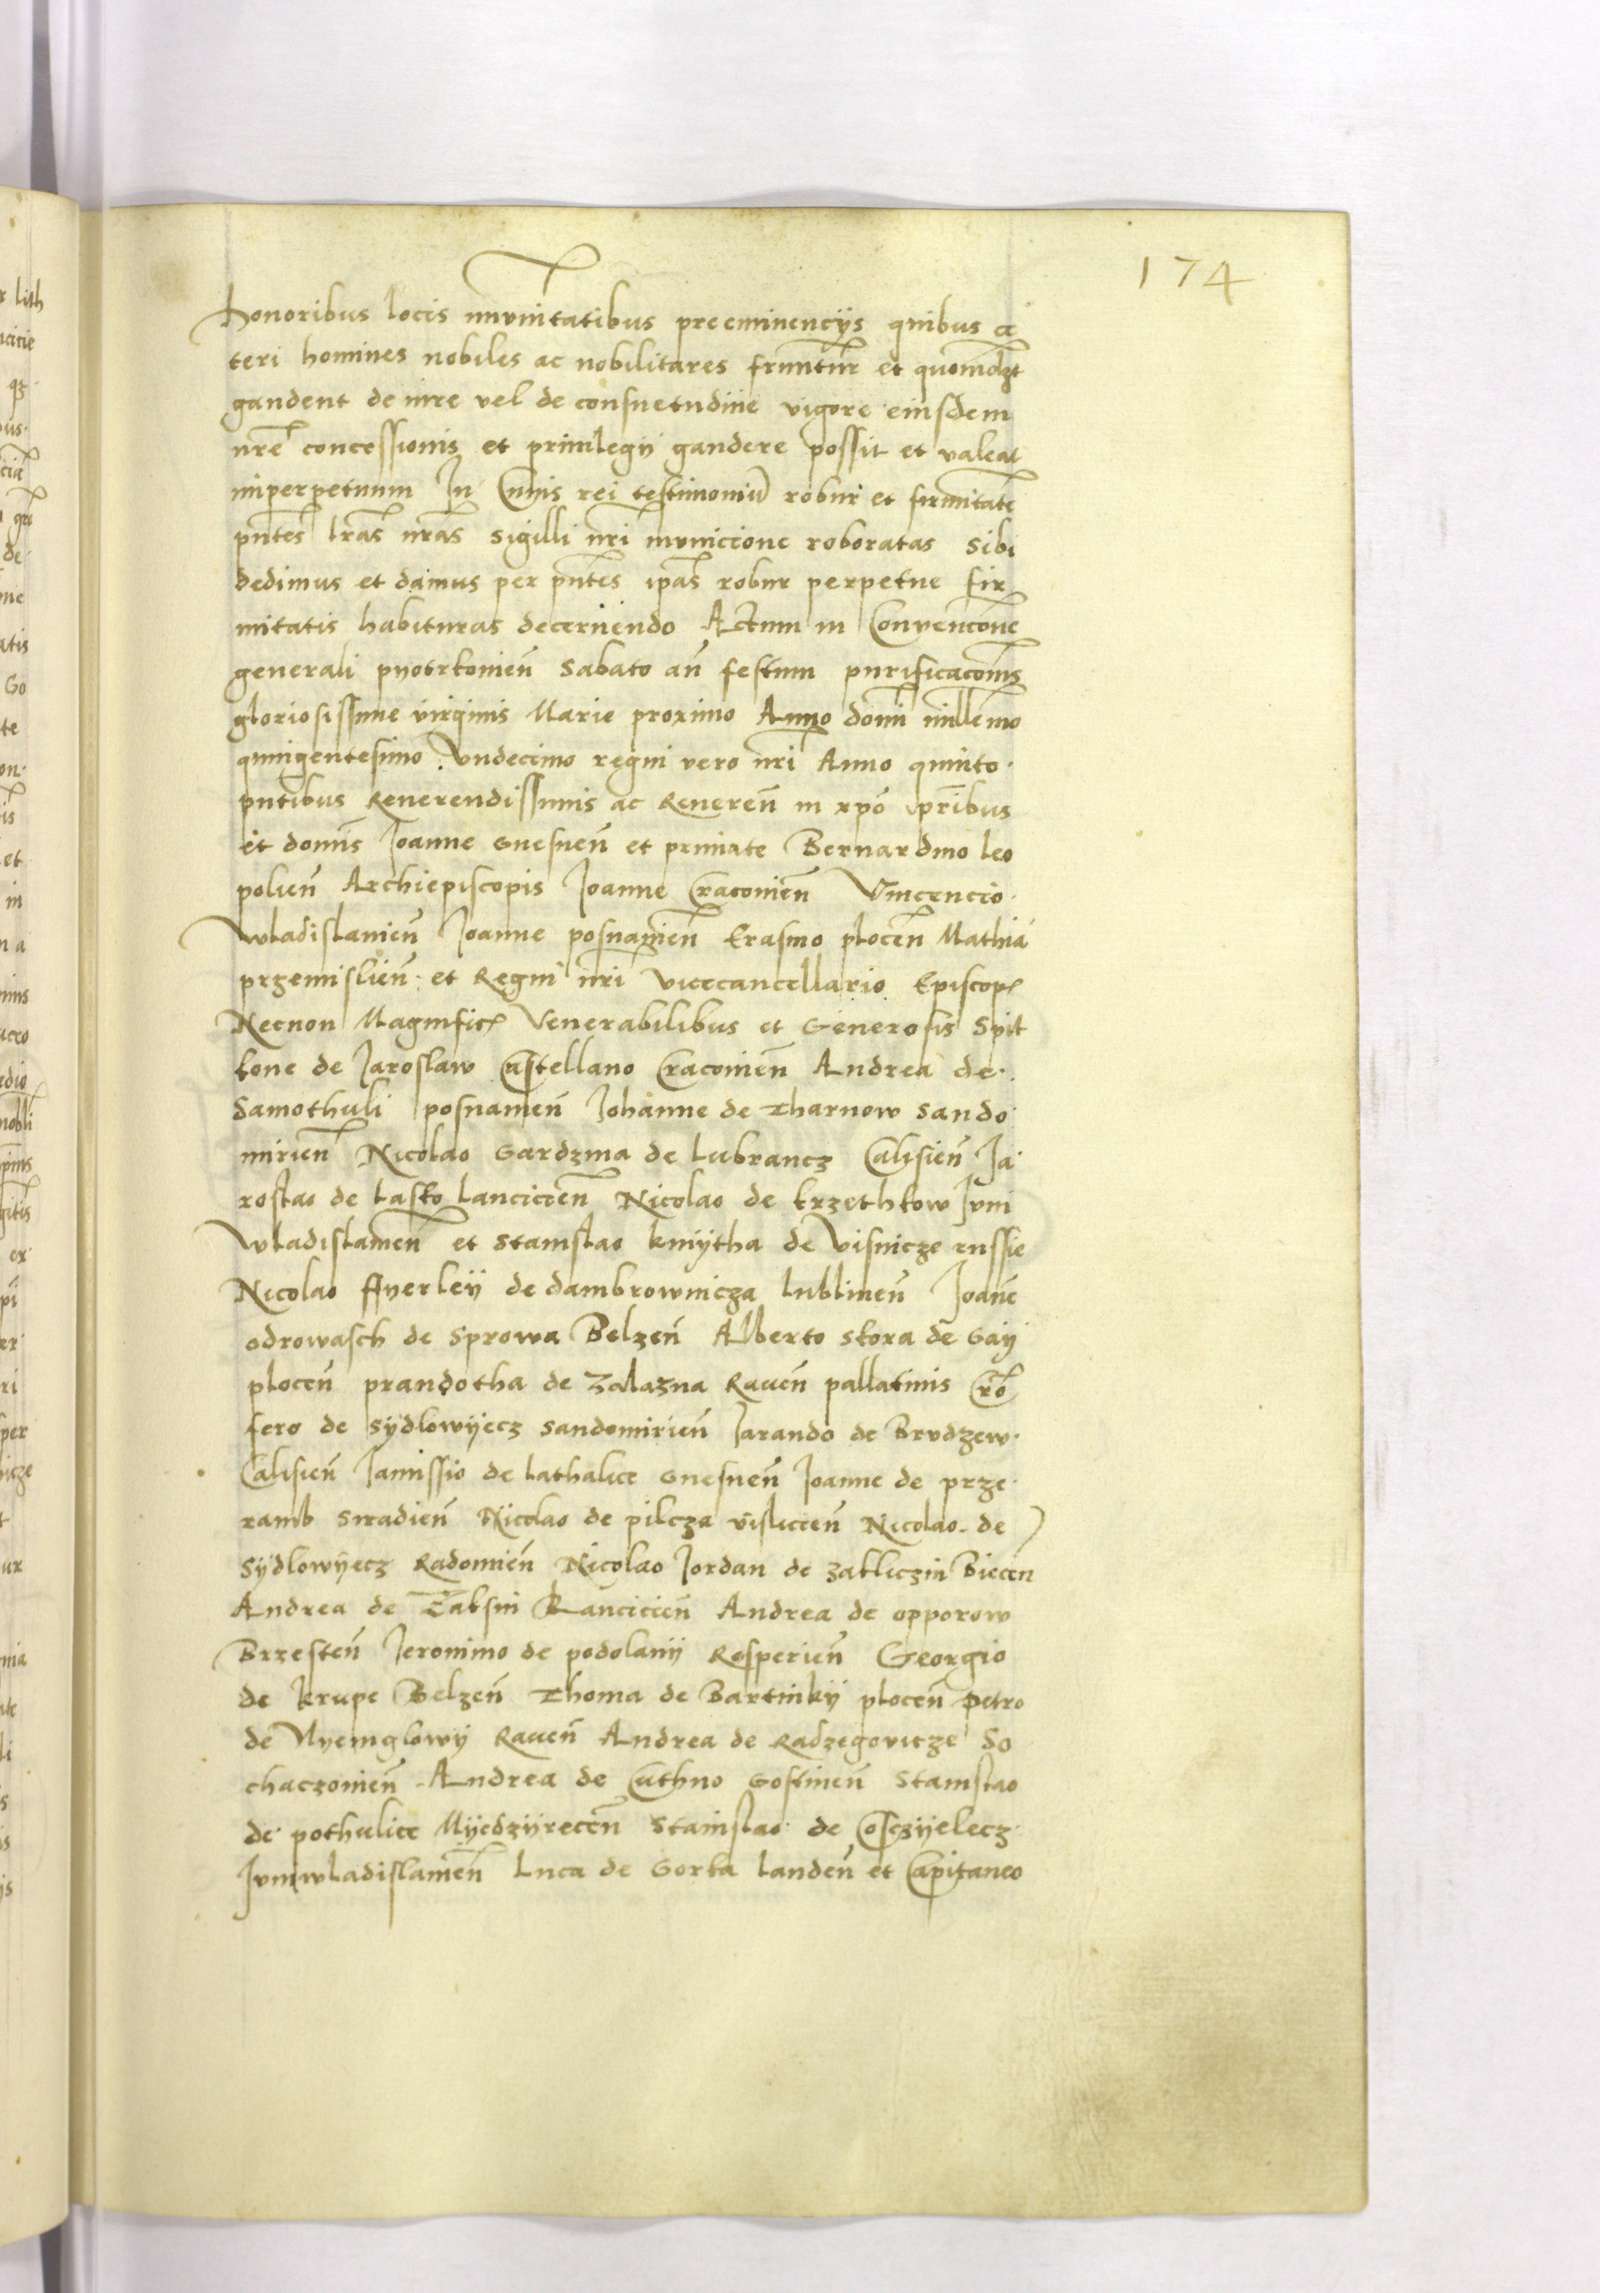 174
honoribus locis imunitatibus preeminencijs quibus ce
teri homines nobiles ac nobilitares fruuntur et quomodꝫt
gaudent de iure vel de consuetudine vigore eiusdem
nrē concessionis et priuilegij gaudere possit et valeat
inperpetuum In Cuius rei testimoniū robur et firmitatē
pntēs lrās nrās sigilli nrī municione roboratas sibi
dedimus et damus per pntēs ipās robur perpetue fir
mitatis habituras decernendo Actum in Convencōne
generali pyotrkonień Sabato añ festum purificacōnis
gloriosissime virginis Marie proximo Anno domī millēmo
quingentesimo Vndecimo regni vero nrī Anno quinto
pntibus Reuerendissimis ac Reuereñ in xpō prībus
et domīs Joanne Gnesneñ et primate Bernardino leo
polieñ Archiepiscopis Joanne Cracouieñ Vincencio
Wladislauieñ Joanne posnanieñ Erasmo ploceñ Mathia
przemislieñ et Regni nrī vicecancellario Episcop
Necnon Magnific Venerabilibus et Generosis Spit
kone de Jaroslaw Castellano Cracouieñ Andrea de
Samothuli posnanieñ Johanne de Tharnow Sando
mirieñ Nicolao Gardzina de Lubrancz Calisieñ Ja
roslao de Lasko lanciciēn Nicolao de krzethkow Juni
Wladislauieñ et Stanislao kmijtha de Visnicze russie
Nicolao ffyerleij de dambrownicza lublineñ Joanē
odrowasch de Sprowa Belzeñ Alberto Skora de Gaij
ploceñ prandotha de Zalazna Raueñ pallatinis Cro
fero de Sydlowijecz Sandomirieñ Jarando de Brudzew
Calisieñ Janussio de lathalice Gnesneñ Joanne de prze
ramb Siradieñ Nicolao de pilcza visliceñ Nicolao de
Sijdlowijecz Radomieñ Nicolao Jordan de zakliczin Biecen
Andrea de Tabsin Lancicieñ Andrea de opporow
Brzesteñ Jeronimo de podolanij Rosperieñ Georgio
de krupe Belzeñ Thoma de Bartinkij ploceñ petro
de Nyemglowij Raueñ Andrea de Radzegovicze So
chaczouieñ Andrea de Cuthno Gostineñ Stanislao
de pothulice Mijedzijreceñ Stanislao de Cosczijelecz
Juniwladislauieñ Luca de Gorka landeñ et Capitaneo